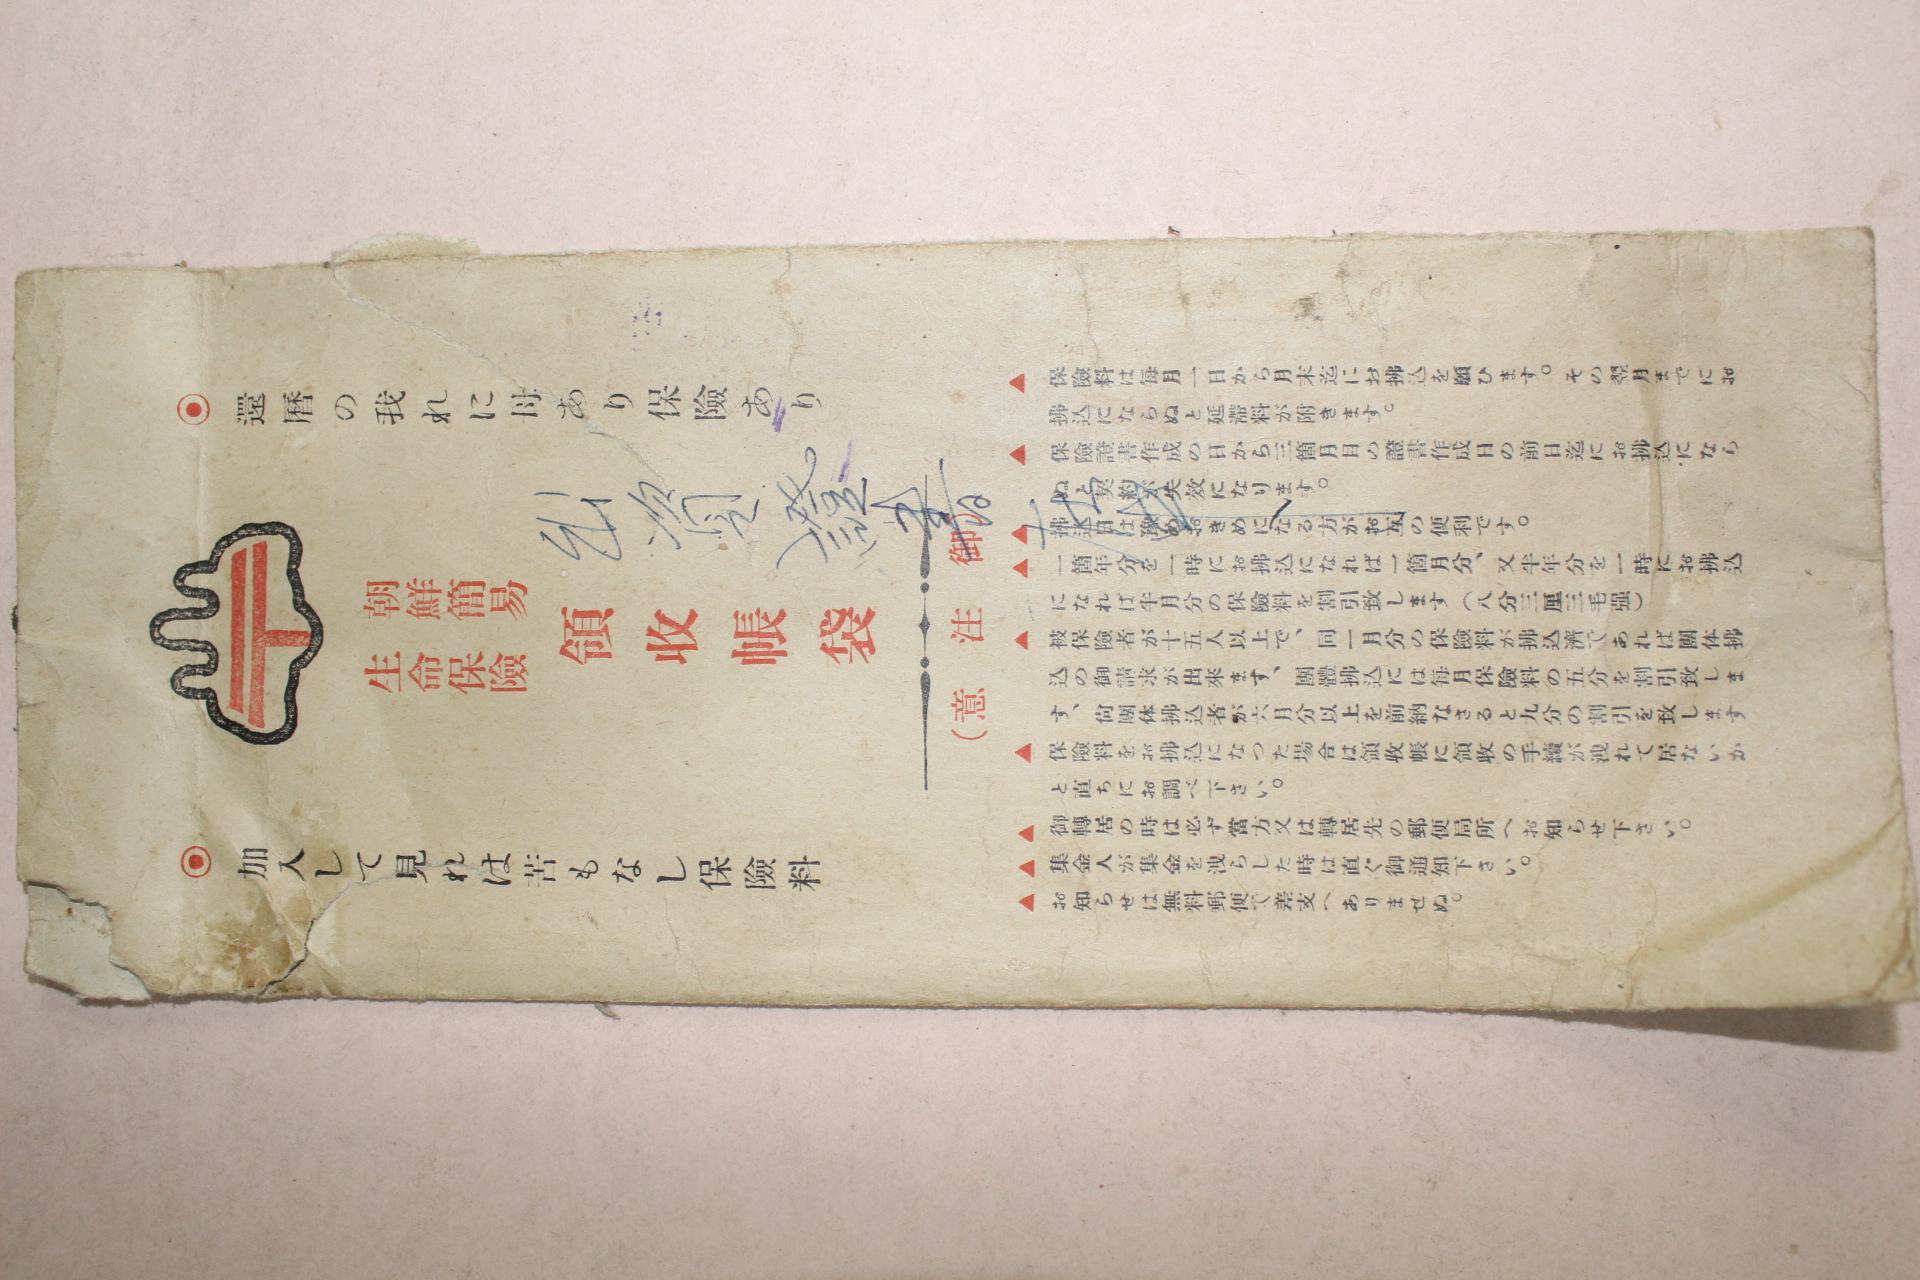 ◉還曆の我れに母あり保險あり
朝鮮簡易
生命保險
領收帳袋
◉加入して見れは苦もなし保險料
御注意
▲保險料は毎月一日から月末迄にお拂込を願ひます。その翌月までにお
拂込にならぬと延滯料が附きます。
▲保險證書作成の日から三箇月目の證書作成日の前日迄にお拂込になら
ぬと契約が失效になります。
▲拂込日は豫めおきめになる方がお互の便利です。
▲一箇年分を一時にお拂込になれば一箇月分、又半年分を一時にお拂込
になれば半月分の保險料を割引致します(八分三厘三毛强)
▲被保險者が十五人以上で、同一月分の保險料が拂込濟であれば團体拂
込の御請求が出來ます、團體拂込には毎月保險料の五分を割引致しま
す、尙團体拂込者が六月分以上を前納なさると九分の割引を致します
▲保險料をお拂込になつた場合は領收帳に領收の手續が洩れて居ないか
と直ちにお調べ下さい。
▲御轉居の時は必ず當方又は轉居先の郵便局所へお知らせ下さい。
▲集金人が集金を洩らした時は直ぐ御通知下さい。
▲お知らせは無料郵便で差支へありませぬ。